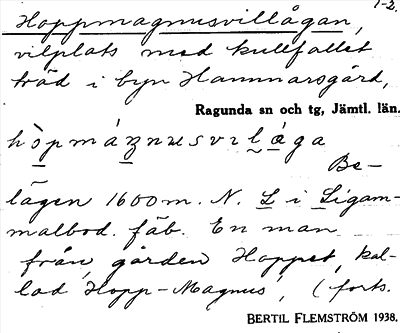 1-2.
Hoppmagnusvillågan,
vilplats med kullfallet
träd i byn Hammarsgård,
Ragunda sn och tg, Jämtl. län.
hòpmáŋnusvɩlága
Be-
lägen 1600 m. N. L i Ligam-
malbod. fäb. En man
från gården Hoppet, kal-
lad 'Hopp-Magnus', (forts.
BERTIL FLEMSTRÖM 1938.